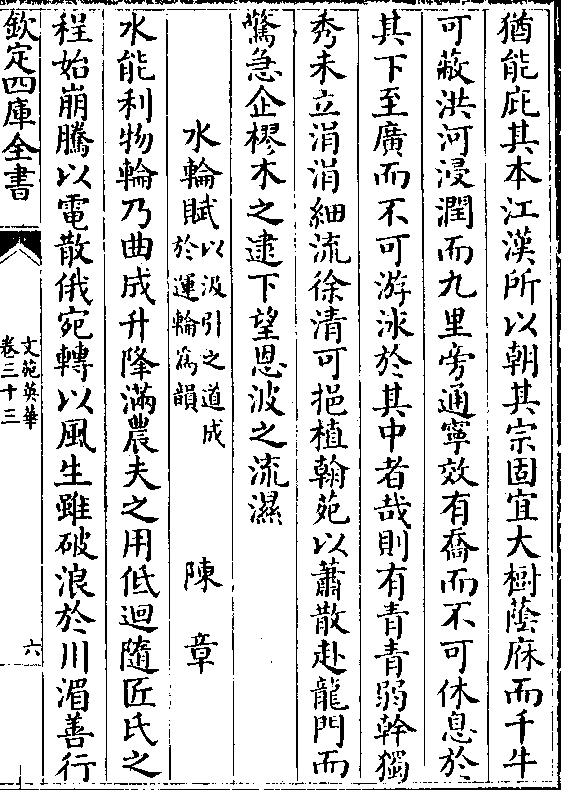 猶能庇其本江漢所以朝其宗固宜大樹蔭庥而千牛
可蔽洪河浸潤而九里旁通寧效有喬而不可休息於
其下至廣而不可游泳於其中者哉則有青青弱幹獨
秀未立涓涓細流徐清可挹植翰苑以蕭散赴龍門而
驚急企樛木之逮下望恩波之流濕
水輪賦以汲引之道成
於運輪為韻
陳章
水能利物輪乃曲成升降滿農夫之用低迴隨匠氏之
程始崩騰以電散俄宛轉以風生雖破浪於川湄善行
欽定四庫全書
文苑英華
卷三十三
六